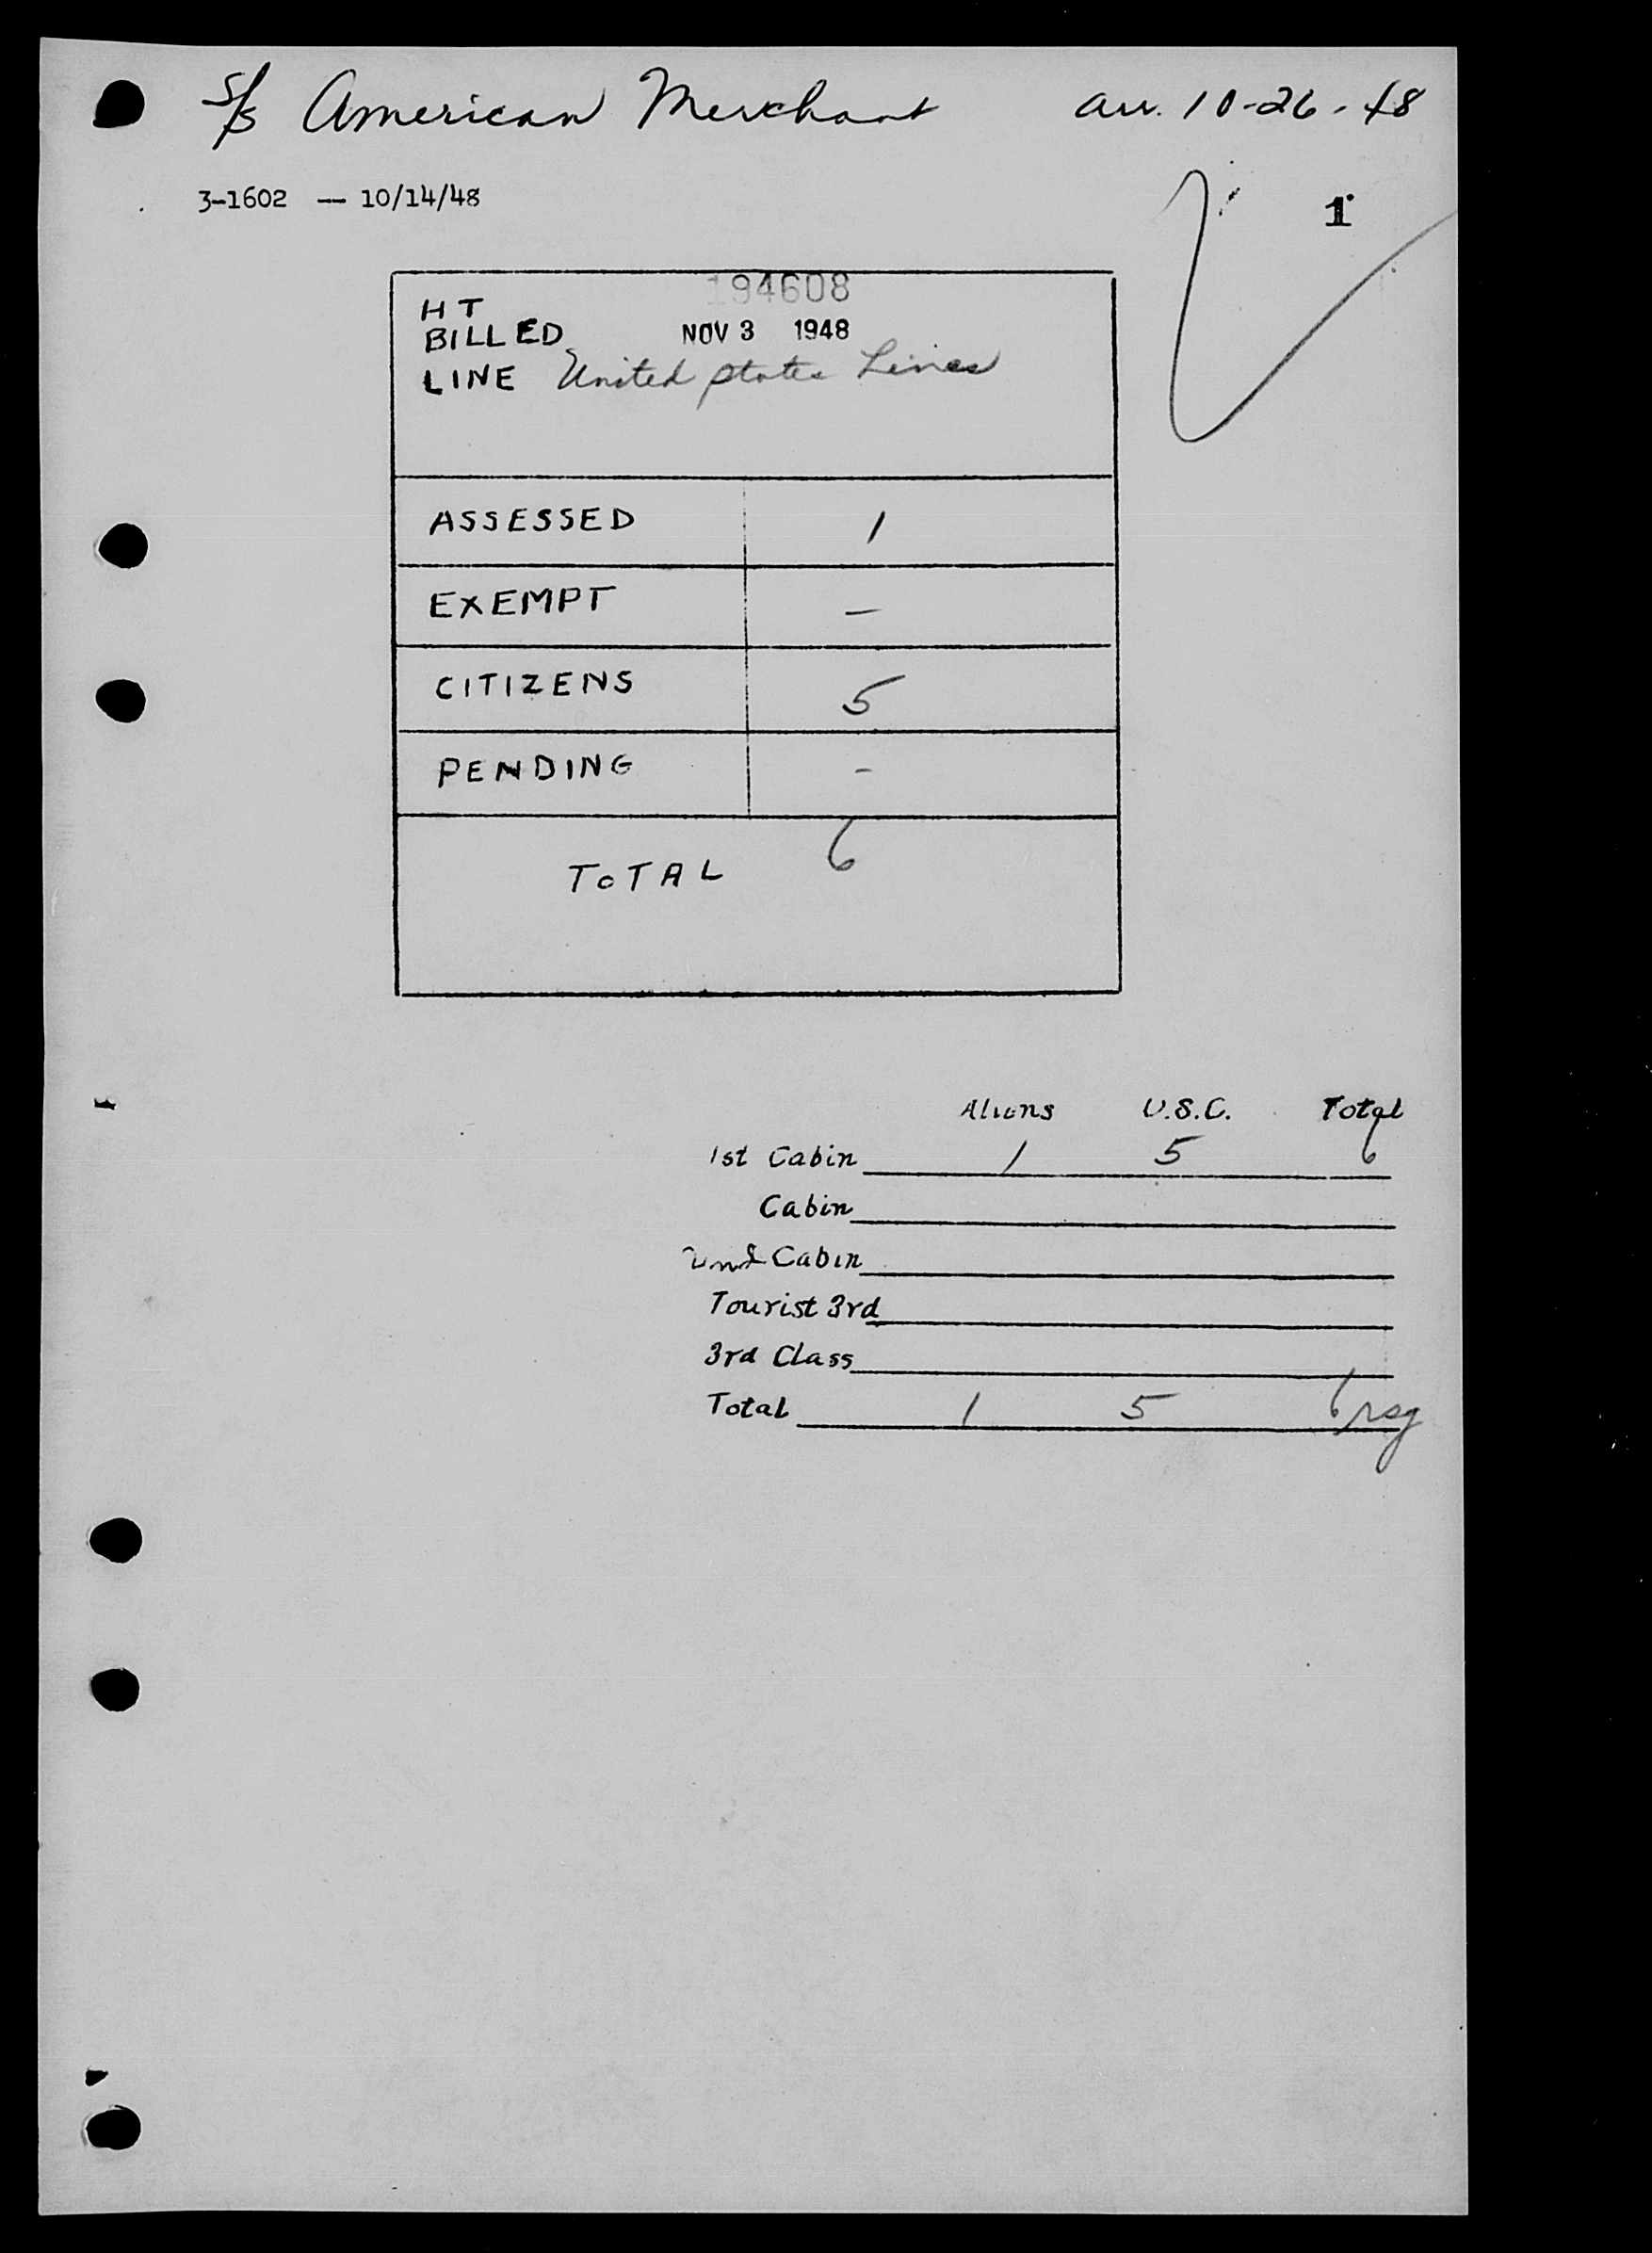 S/S American Merchant arr. 10-26-48
3-1602 — 10/14/48
1
194608
HT
BILLED NOV 3 1948
LINE United States Lines
ASSESSED 1
EXEMPT –
CITIZENS 5
PENDING –
TOTAL 6
Aliens U.S.C. Total
1st Cabin 1 5 6
Cabin
2nd Cabin
Tourist 3rd
3rd Class
Total 1 5 6